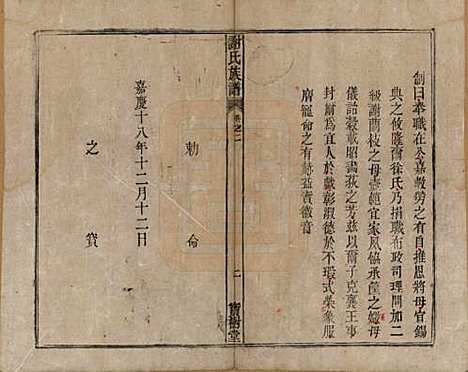 制曰奉職在公嘉教勞之有自推恩將母宜錫
典之攸隆爾徐氏乃捐職布政司理問加二
級謝蘭枝之母壼範宜家夙協承筐之媺母
儀詒穀載昭畫荻之芳茲以爾子克襄王事
封爾為宜人於戲彰淑德於不瑕式榮象服
膺寵命之有赫益賁徽音
謝氏族譜
卷之二
二
寶樹堂
勅命
嘉慶十八年十二月十二日
之寶